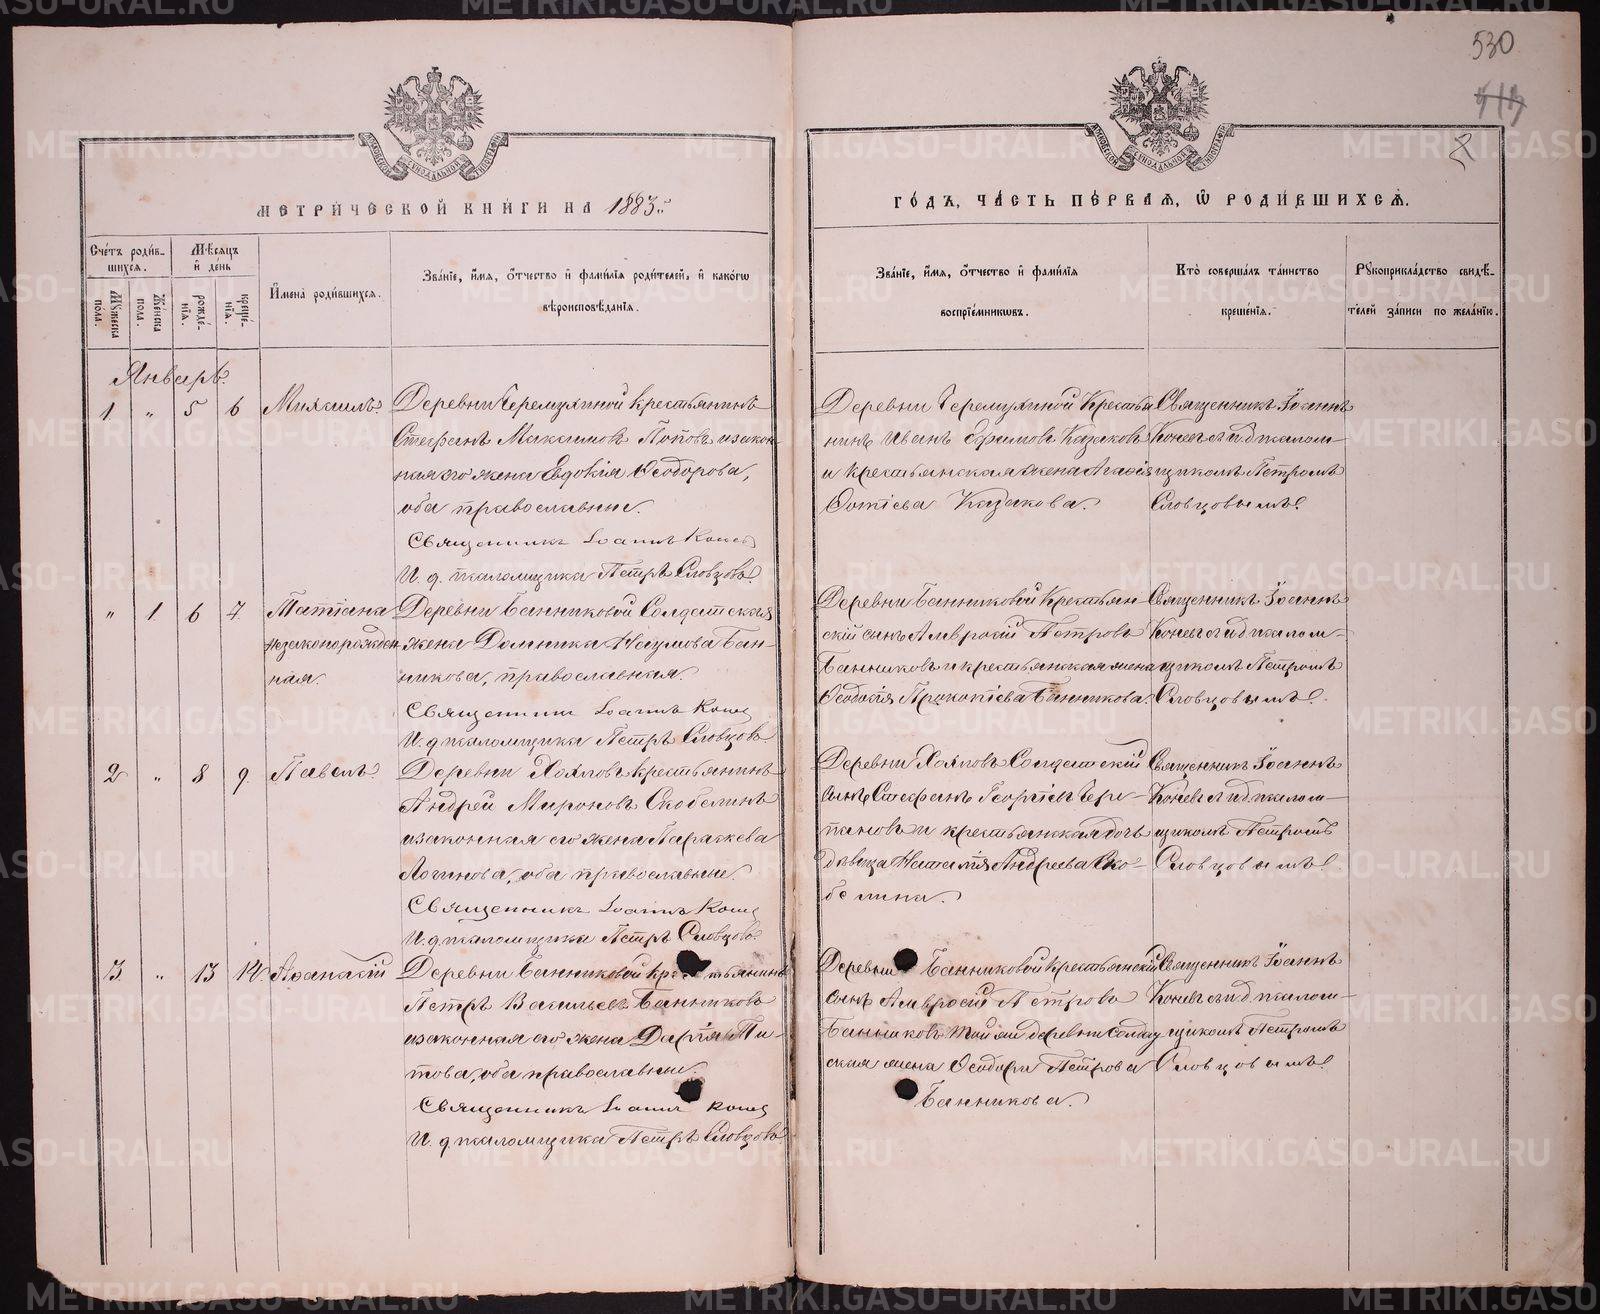 530
МЕТРИЧЕСКОЙ КНИГИ НА 1883.
ГОДЪ, ЧАСТЬ ПЕРВАЯ, Ѡ РОДИВШИХСЯ.
Счетъ родив-
шихся.
Мѣсяцъ
и день
Имена родившихся.
Званіе, имя, отчество и фамилія родителей, и какогѡ
вѣроисповѣданія.
Званіе, имя, отчество и фамилія
воспріемникѡвъ.
Кто совершалъ таинство
крещенія.
Рукоприкладство свидѣ-
телей записи по желанію.
Мужеска пола.
Женска пола.
рожде-
нія.
креще-
нія.
Январь.
1 " 5 6 Михаилъ.
Деревни Черемухиной крестьянинъ
Стефанъ Максимовъ Поповъ и закон-
ная его жена Евдокія Ѳеодорова,
оба православные.
Священникъ Іоаннъ
И. д. псаломщика Петръ Словцовъ.
Деревни Черемухиной Крестья-
нинъ Иванъ Ефимовъ Казаковъ
и крестьянская жена
Фотіева Казакова.
Священникъ Іоаннъ
Коневъ съ и.д. псалом-
щикомъ Петромъ
Словцовымъ.
" 1 6 7. Татіана
незаконорожден
ная.
Деревни Банниковой Солдатская
жена Домника Наумова Бан-
никова, православная.
Священникъ Іоаннъ
И. д. псаломщика Петръ Словцовъ.
Деревни Банниковой Крестьян-
скій сынъ Амвросій Петровъ
Банниковъ и крестьянская жена
Ѳеодосія Прокопіева Банникова.
Священникъ Іоаннъ
Коневъ съ и.д. псалом-
щикомъ Петромъ
Словцовымъ.
2 " 8 9. Павелъ.
Деревни крестьянинъ
Андрей Мироновъ Скобелинъ
и законная его жена Параскева
Логинова, оба православные.
Священникъ Іоаннъ
И. д. псаломщика Петръ Словцовъ.
Деревни Солдатскій
сынъ Стефанъ Георгіевъ Чере-
пановъ и крестьянская дочь
дѣвица Наталія Андреева Ско-
белина.
Священникъ Іоаннъ
Коневъ съ и.д. псалом-
щикомъ Петромъ
Словцовымъ.
3. " 13 14. Аѳанасій
Деревни Банниковой крестьянинъ
Петръ Васильевъ Банниковъ
и законная его жена Дарія Ти-
това, оба православные.
Священникъ Іоаннъ
И. д. псаломщика Петръ Словцовъ.
Деревни Банниковой Крестьянскій
сынъ Амвросій Петровъ
Банниковъ и той же деревни Солдат
ская жена Ѳеодора Петрова
Банникова.
Священникъ Іоаннъ
Коневъ съ и.д. псалом-
щикомъ Петромъ
Словцовымъ.
METRIKI.GASO-URAL.RU